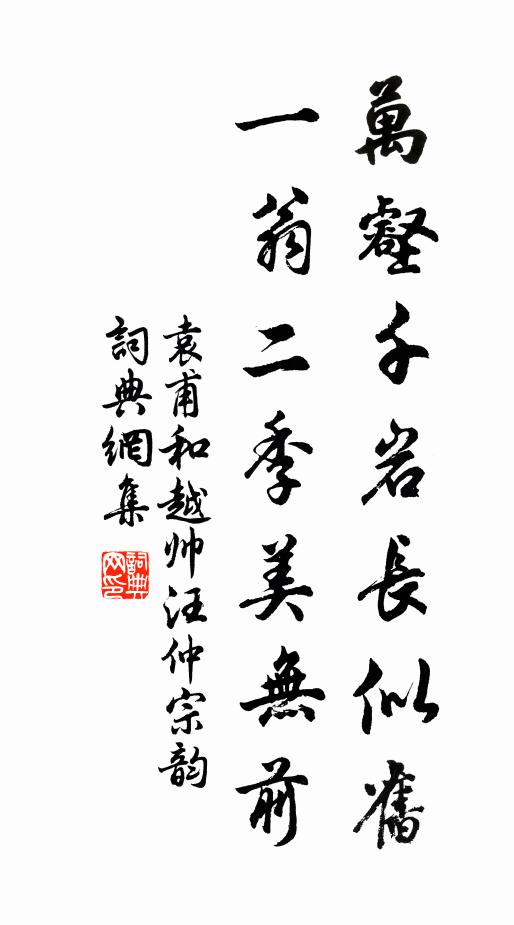 萬壑千岩長似舊
一翁二季美無前
袁甫和越帅汪仲宗韵
詞典網集
詞典网印